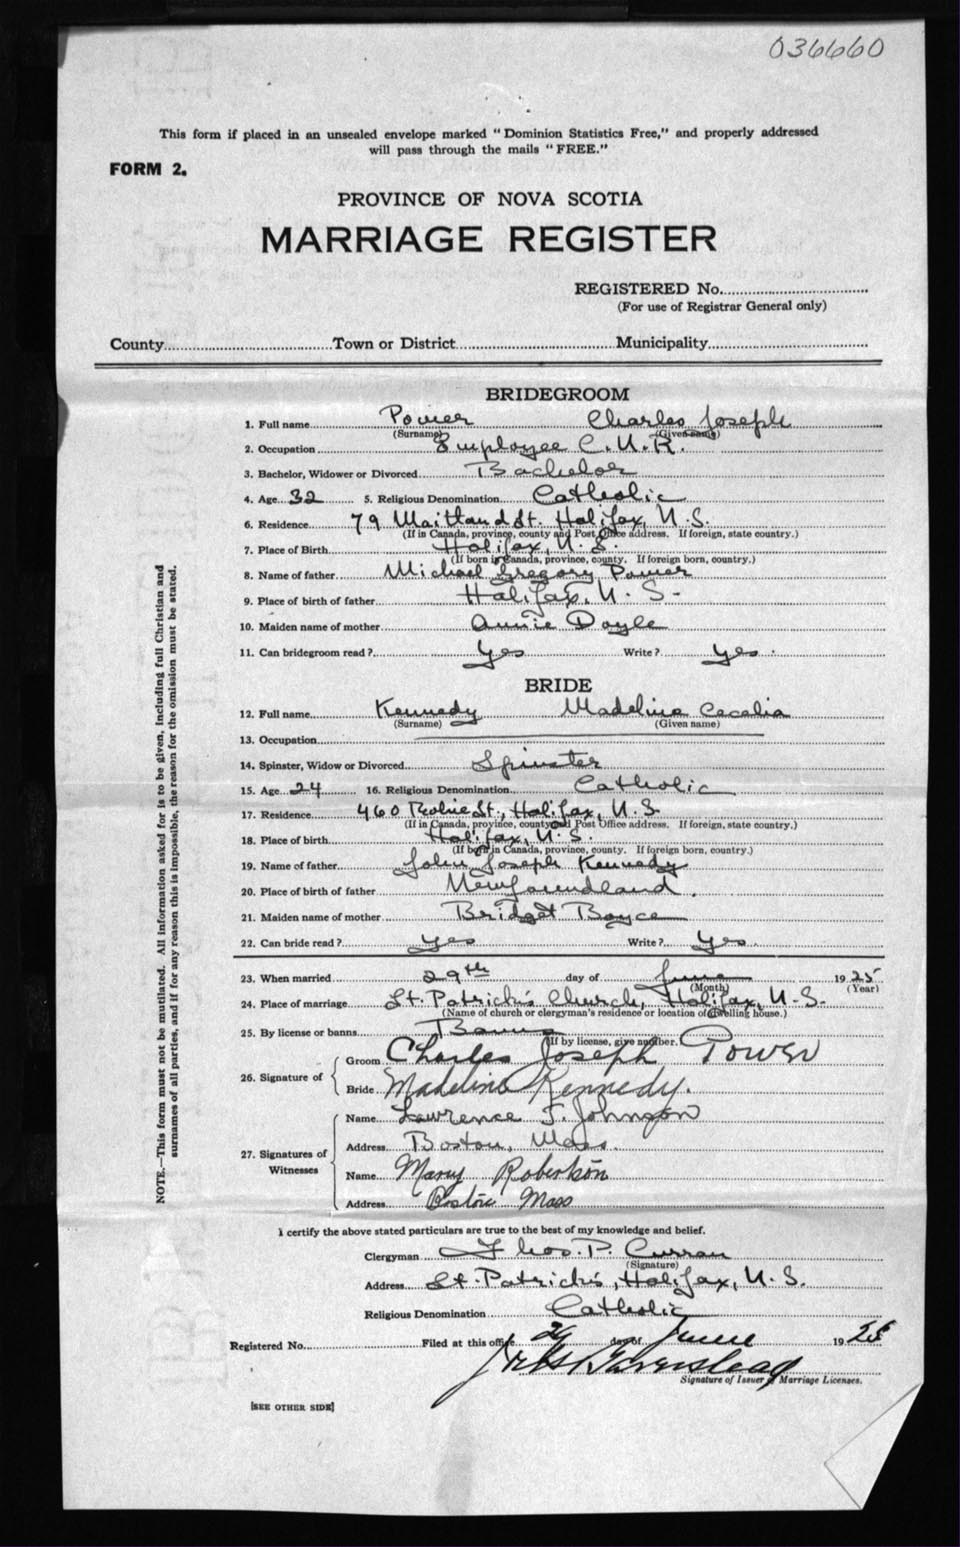 036660
This form if placed in an unsealed envelope marked "Dominion Statistics Free," and properly addressed
will pass through the mails "FREE."
FORM 2.
PROVINCE OF NOVA SCOTIA
MARRIAGE REGISTER
REGISTERED No.
(For use of Registrar General only)
County Town or District Municipality
BRIDEGROOM
1. Full name Power Charles Joseph
(Surname) (Given name)
2. Occupation Employee C.N.R.
3. Bachelor, Widower or Divorced Bachelor
4. Age 32 5. Religious Denomination Catholic
6. Residence 79 Maitland St. Halifax, N.S.
(If in Canada, province, county and Post Office address. If foreign, state country.)
7. Place of Birth Halifax, N.S.
(If born in Canada, province, county. If foreign born, country.)
8. Name of father Michael Gregory Power
9. Place of birth of father Halifax, N.S.
10. Maiden name of mother Annie Doyle
11. Can bridegroom read? Yes Write? Yes.
BRIDE
12. Full name Kennedy Madeline Cecelia
(Surname) (Given name)
13. Occupation
14. Spinster, Widow or Divorced Spinster
15. Age 24 16. Religious Denomination Catholic
17. Residence 460 St., Halifax, N.S.
(If in Canada, province, county and Post Office address. If foreign, state country.)
18. Place of birth Halifax, N.S.
(If born in Canada, province, county. If foreign born, country.)
19. Name of father John Joseph Kennedy
20. Place of birth of father Newfoundland.
21. Maiden name of mother Bridget Boyce
22. Can bride read? Yes Write? Yes.
23. When married 29th day of June 1925
(Month) (Year)
24. Place of marriage St. Patrick's Church, Halifax, N.S.
(Name of church or clergyman's residence or location of dwelling house.)
25. By license or banns Banns
(If by license, give number.)
26. Signature of Groom Charles Joseph Power
Bride Madeline Kennedy.
27. Signatures of Witnesses Name Lawrence F. Johnson
Address Boston, Mass.
Name Mary Robertson
Address Boston Mass
I certify the above stated particulars are true to the best of my knowledge and belief.
Clergyman Thos. P. Curran
(Signature)
Address St. Patrick's, Halifax, N.S.
Religious Denomination Catholic
Registered No. Filed at this office 29 day of June 1925
Signature of Issuer of Marriage Licenses.
[SEE OTHER SIDE]
NOTE.—This form must not be mutilated. All information asked for is to be given, including full Christian and
surnames of all parties, and if for any reason this is impossible, the reason for the omission must be stated.